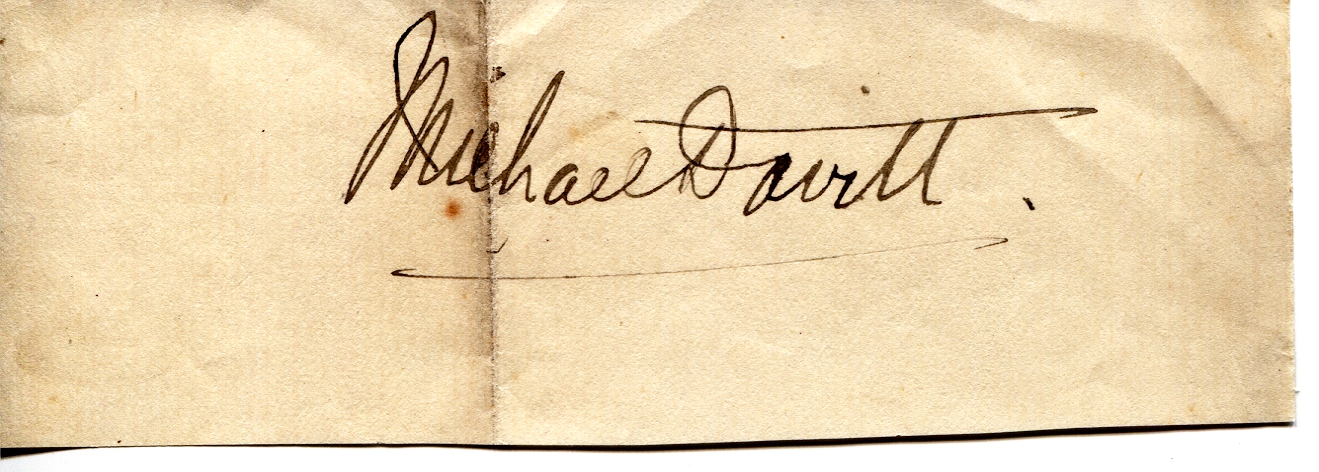 Michael Davitt.